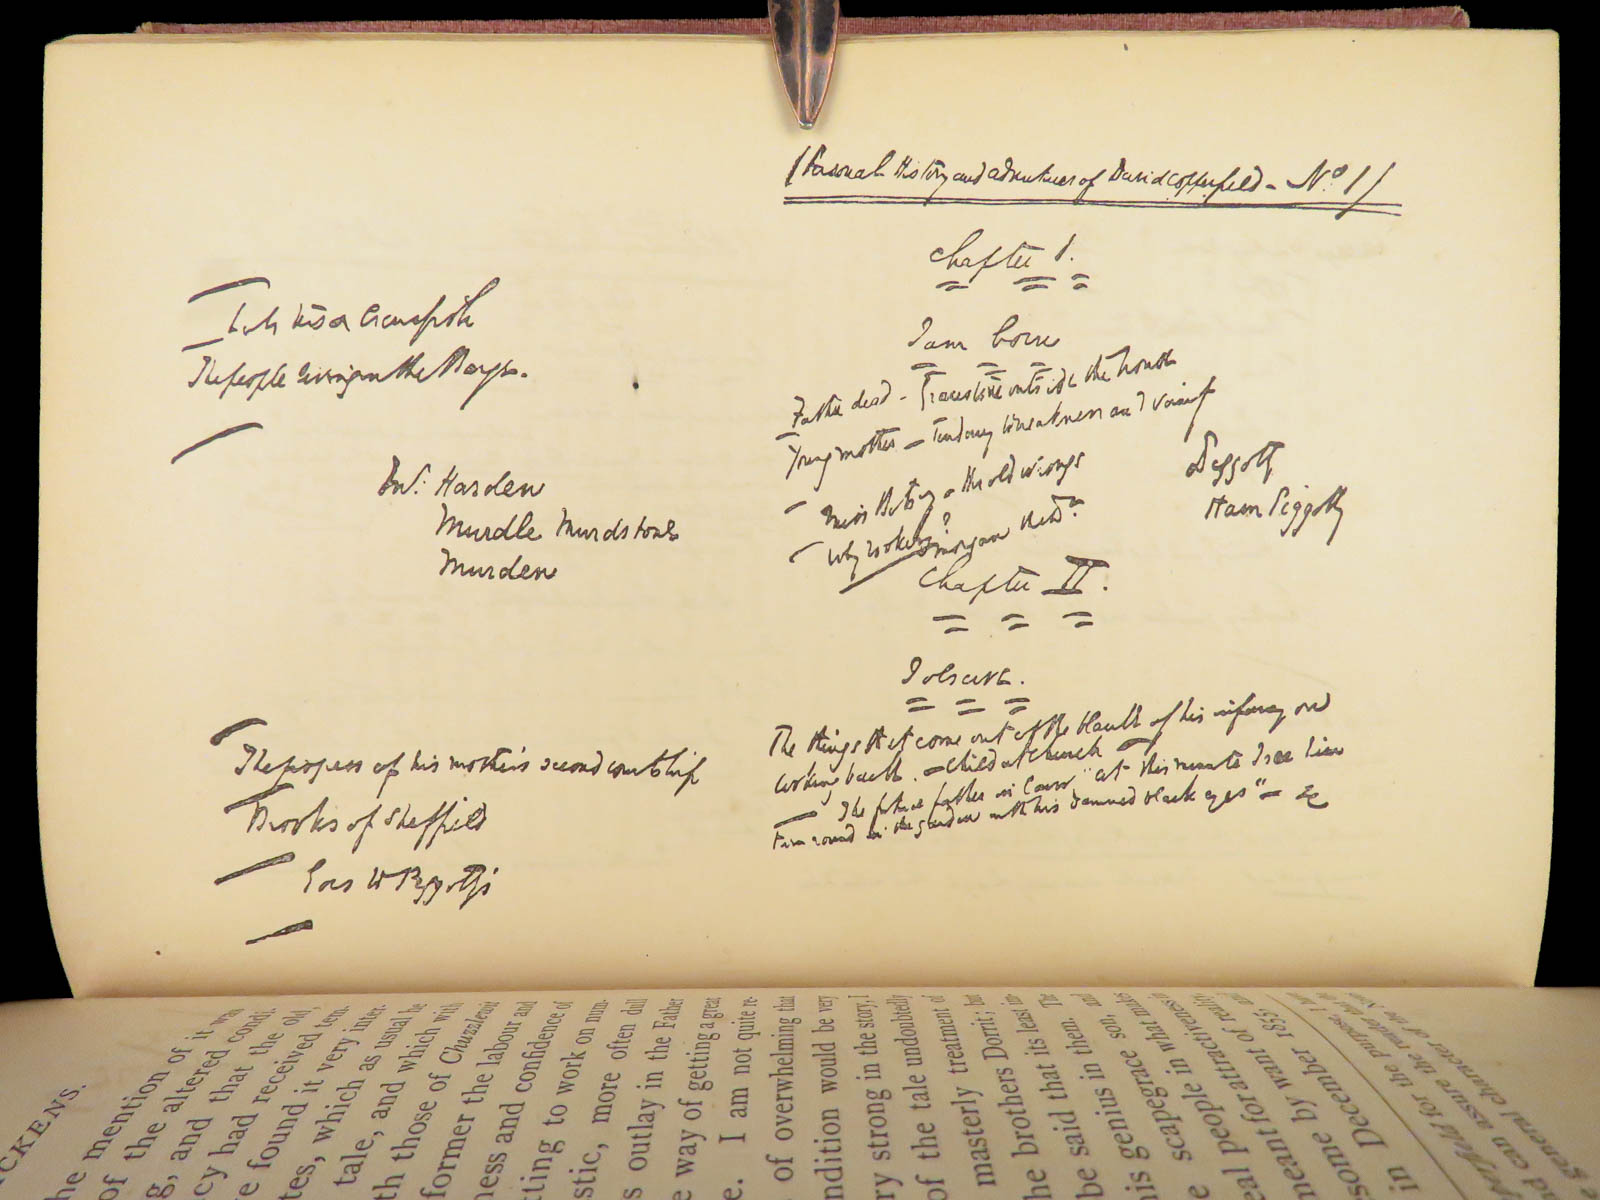 (Personal History and adventures of David Copperfield - No. 1)
Chapter I.
I am born
Father dead - Gravestone outside the house
Young mother - tendency to weakness and vanity
Miss Betsey - the old wrongs
Why Rookery?
Peggotty
Ham Peggotty
Chapter II.
I observe.
The things that come out of the blank of his infancy on
looking back. - Child at church
The future father in law "at this minute I see him
turn round in the garden with his damned black eyes" - &c
The people living in the
Mr. Harden
Murdle Murdstone
Murden
The progress of his mother's second courtship
Brooks of Sheffield
Goes to Peggotty's
CKENS.
he mention of it was
of the altered condi-
g, and that the old
cy had received tem-
e found it very inter-
tes, which as usual he
tale, and which with
th those of Chuzzlewit
former the labour and
ness and confidence of
tting to work on num-
stic, more often dull
s outlay in the Father
e way of getting a great
e. I am not quite re-
of overwhelming that
ndition would be very
ry strong in the story, I
of the tale undoubtedly
masterly treatment of
he brothers Dorrit; but
be said that its least in-
his genius in them. The
e scapegrace son, and
eal people in what makes
meant for attractiveness
some by want of reality
in December 1855,